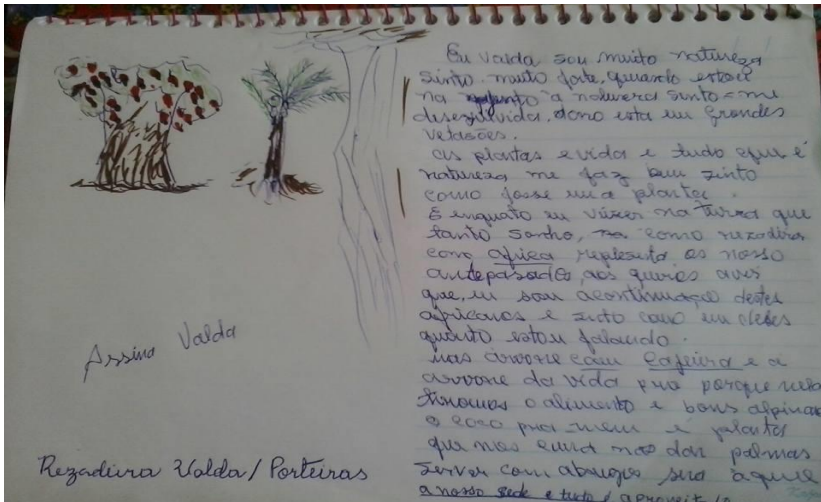 Eu Valda sou muito natureza
sinto muito forte, quando estou
na a natureza sinto-me
desenvolvida. como esta em grandes
vetasões.
As plantas e vida e tudo que é
natureza me faz bem sinto
como fosse uma planta.
E enquato eu viver na terra que
tanto sonho, como rezadeira
com africa reprisenta os nosso
antepasados, aos queros aver
que, eu sou acontinuação destes
africanos e sinto como um deles
quanto estou falando.
mas arvore com Cajeira e a
arvore da vida pra porque nela
tiramos o alimento e bons
o coco pra mem é planta
que nos cura nas dar palmas
server com abrigo, sua água
a nosso sede e tudo / aproveit
Assina Valda
Rezadeira Valda / Porteiras